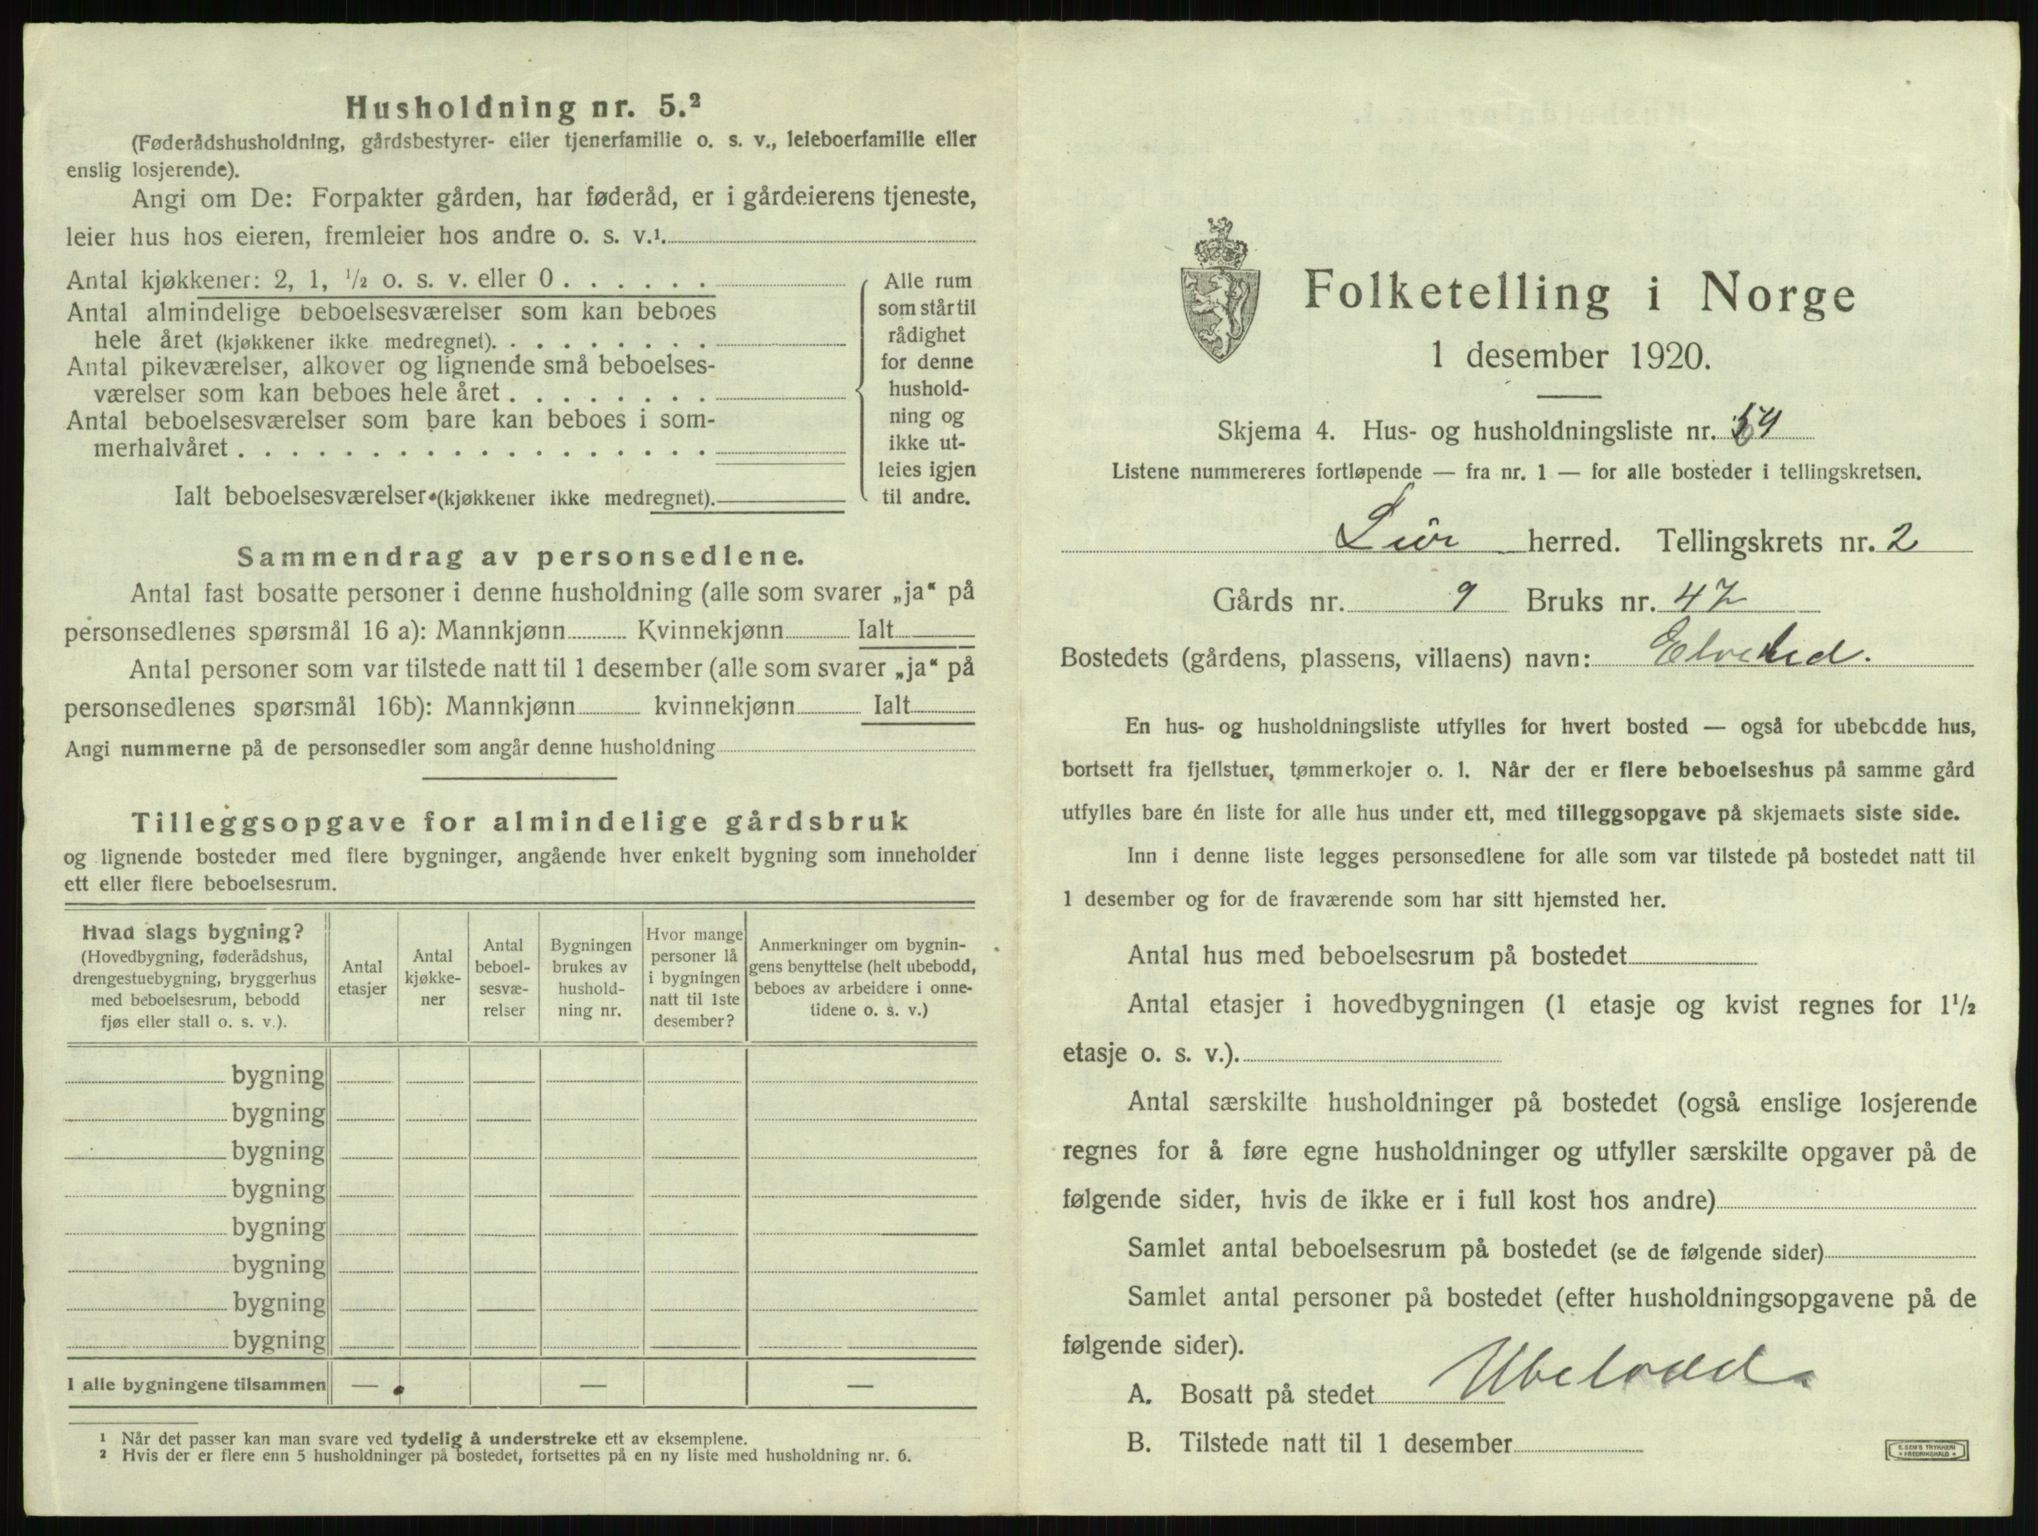 Husholdning nr. 5.²
(Føderådshusholdning, gårdsbestyrer- eller tjenerfamilie o. s. v., leieboerfamilie eller
enslig losjerende).
Angi om De: Forpakter gården, har føderåd, er i gårdeierens tjeneste,
leier hus hos eieren, fremleier hos andre o. s. v.¹
Antal kjøkkener: 2, 1, ½ o. s. v. eller 0 . . . . . .
Antal almindelige beboelsesværelser som kan beboes
hele året (kjøkkener ikke medregnet). . . . . . . . .
Antal pikeværelser, alkover og lignende små beboelses-
værelser som kan beboes hele året . . . . . . . .
Antal beboelsesværelser som bare kan beboes i som-
merhalvåret . . . . . . . . . . . . . . . . . .
Ialt beboelsesværelser (kjøkkener ikke medregnet).
Alle rum
som står til
rådighet
for denne
hushold-
ning og
ikke ut-
leies igjen
til andre.
Sammendrag av personsedlene.
Antal fast bosatte personer i denne husholdning (alle som svarer „ja“ på
personsedlenes spørsmål 16 a): Mannkjønn Kvinnekjønn Ialt
Antal personer som var tilstede natt til 1 desember (alle som svarer „ja“ på
personsedlenes spørsmål 16b): Mannkjønn kvinnekjønn Ialt
Angi nummerne på de personsedler som angår denne husholdning
Tilleggsopgave for almindelige gårdsbruk
og lignende bosteder med flere bygninger, angående hver enkelt bygning som inneholder
ett eller flere beboelsesrum.
Hvad slags bygning?
(Hovedbygning, føderådshus,
drengestuebygning, bryggerhus
med beboelsesrum, bebodd
fjøs eller stall o. s. v.).
Antal
etasjer
Antal
kjøkke-
ner
Antal
beboel-
sesvæ-
relser
Bygningen
brukes av
hushold-
ning nr.
Hvor mange
personer lå
i bygningen
natt til 1ste
desember?
Anmerkninger om bygnin-
gens benyttelse (helt ubebodd,
beboes av arbeidere i onne-
tidene o. s. v.)
bygning
bygning
bygning
bygning
bygning
bygning
bygning
bygning
I alle bygningene tilsammen — — —
¹ Når det passer kan man svare ved tydelig å understreke ett av eksemplene.
² Hvis der er flere enn 5 husholdninger på bostedet, fortsettes på en ny liste med husholdning nr. 6.
Folketelling i Norge
1 desember 1920.
Skjema 4. Hus- og husholdningsliste nr.
Listene nummereres fortløpende — fra nr. 1 — for alle bosteder i tellingskretsen.
Lier herred. Tellingskrets nr. 2
Gårds nr. 9 Bruks nr. 47
Bostedets (gårdens, plassens, villaens) navn:
En hus- og husholdningsliste utfylles for hvert bosted — også for ubebodde hus,
bortsett fra fjellstuer, tømmerkojer o. l. Når der er flere beboelseshus på samme gård
utfylles bare én liste for alle hus under ett, med tilleggsopgave på skjemaets siste side.
Inn i denne liste legges personsedlene for alle som var tilstede på bostedet natt til
1 desember og for de fraværende som har sitt hjemsted her.
Antal hus med beboelsesrum på bostedet
Antal etasjer i hovedbygningen (1 etasje og kvist regnes for 1½
etasje o. s. v.).
Antal særskilte husholdninger på bostedet (også enslige losjerende
regnes for å føre egne husholdninger og utfyller særskilte opgaver på de
følgende sider, hvis de ikke er i full kost hos andre)
Samlet antal beboelsesrum på bostedet (se de følgende sider)
Samlet antal personer på bostedet (efter husholdningsopgavene på de
følgende sider).
A. Bosatt på stedet Ubebodd.
B. Tilstede natt til 1 desember
E. SEM'S TRYKKERI
FREDRIKSHALD